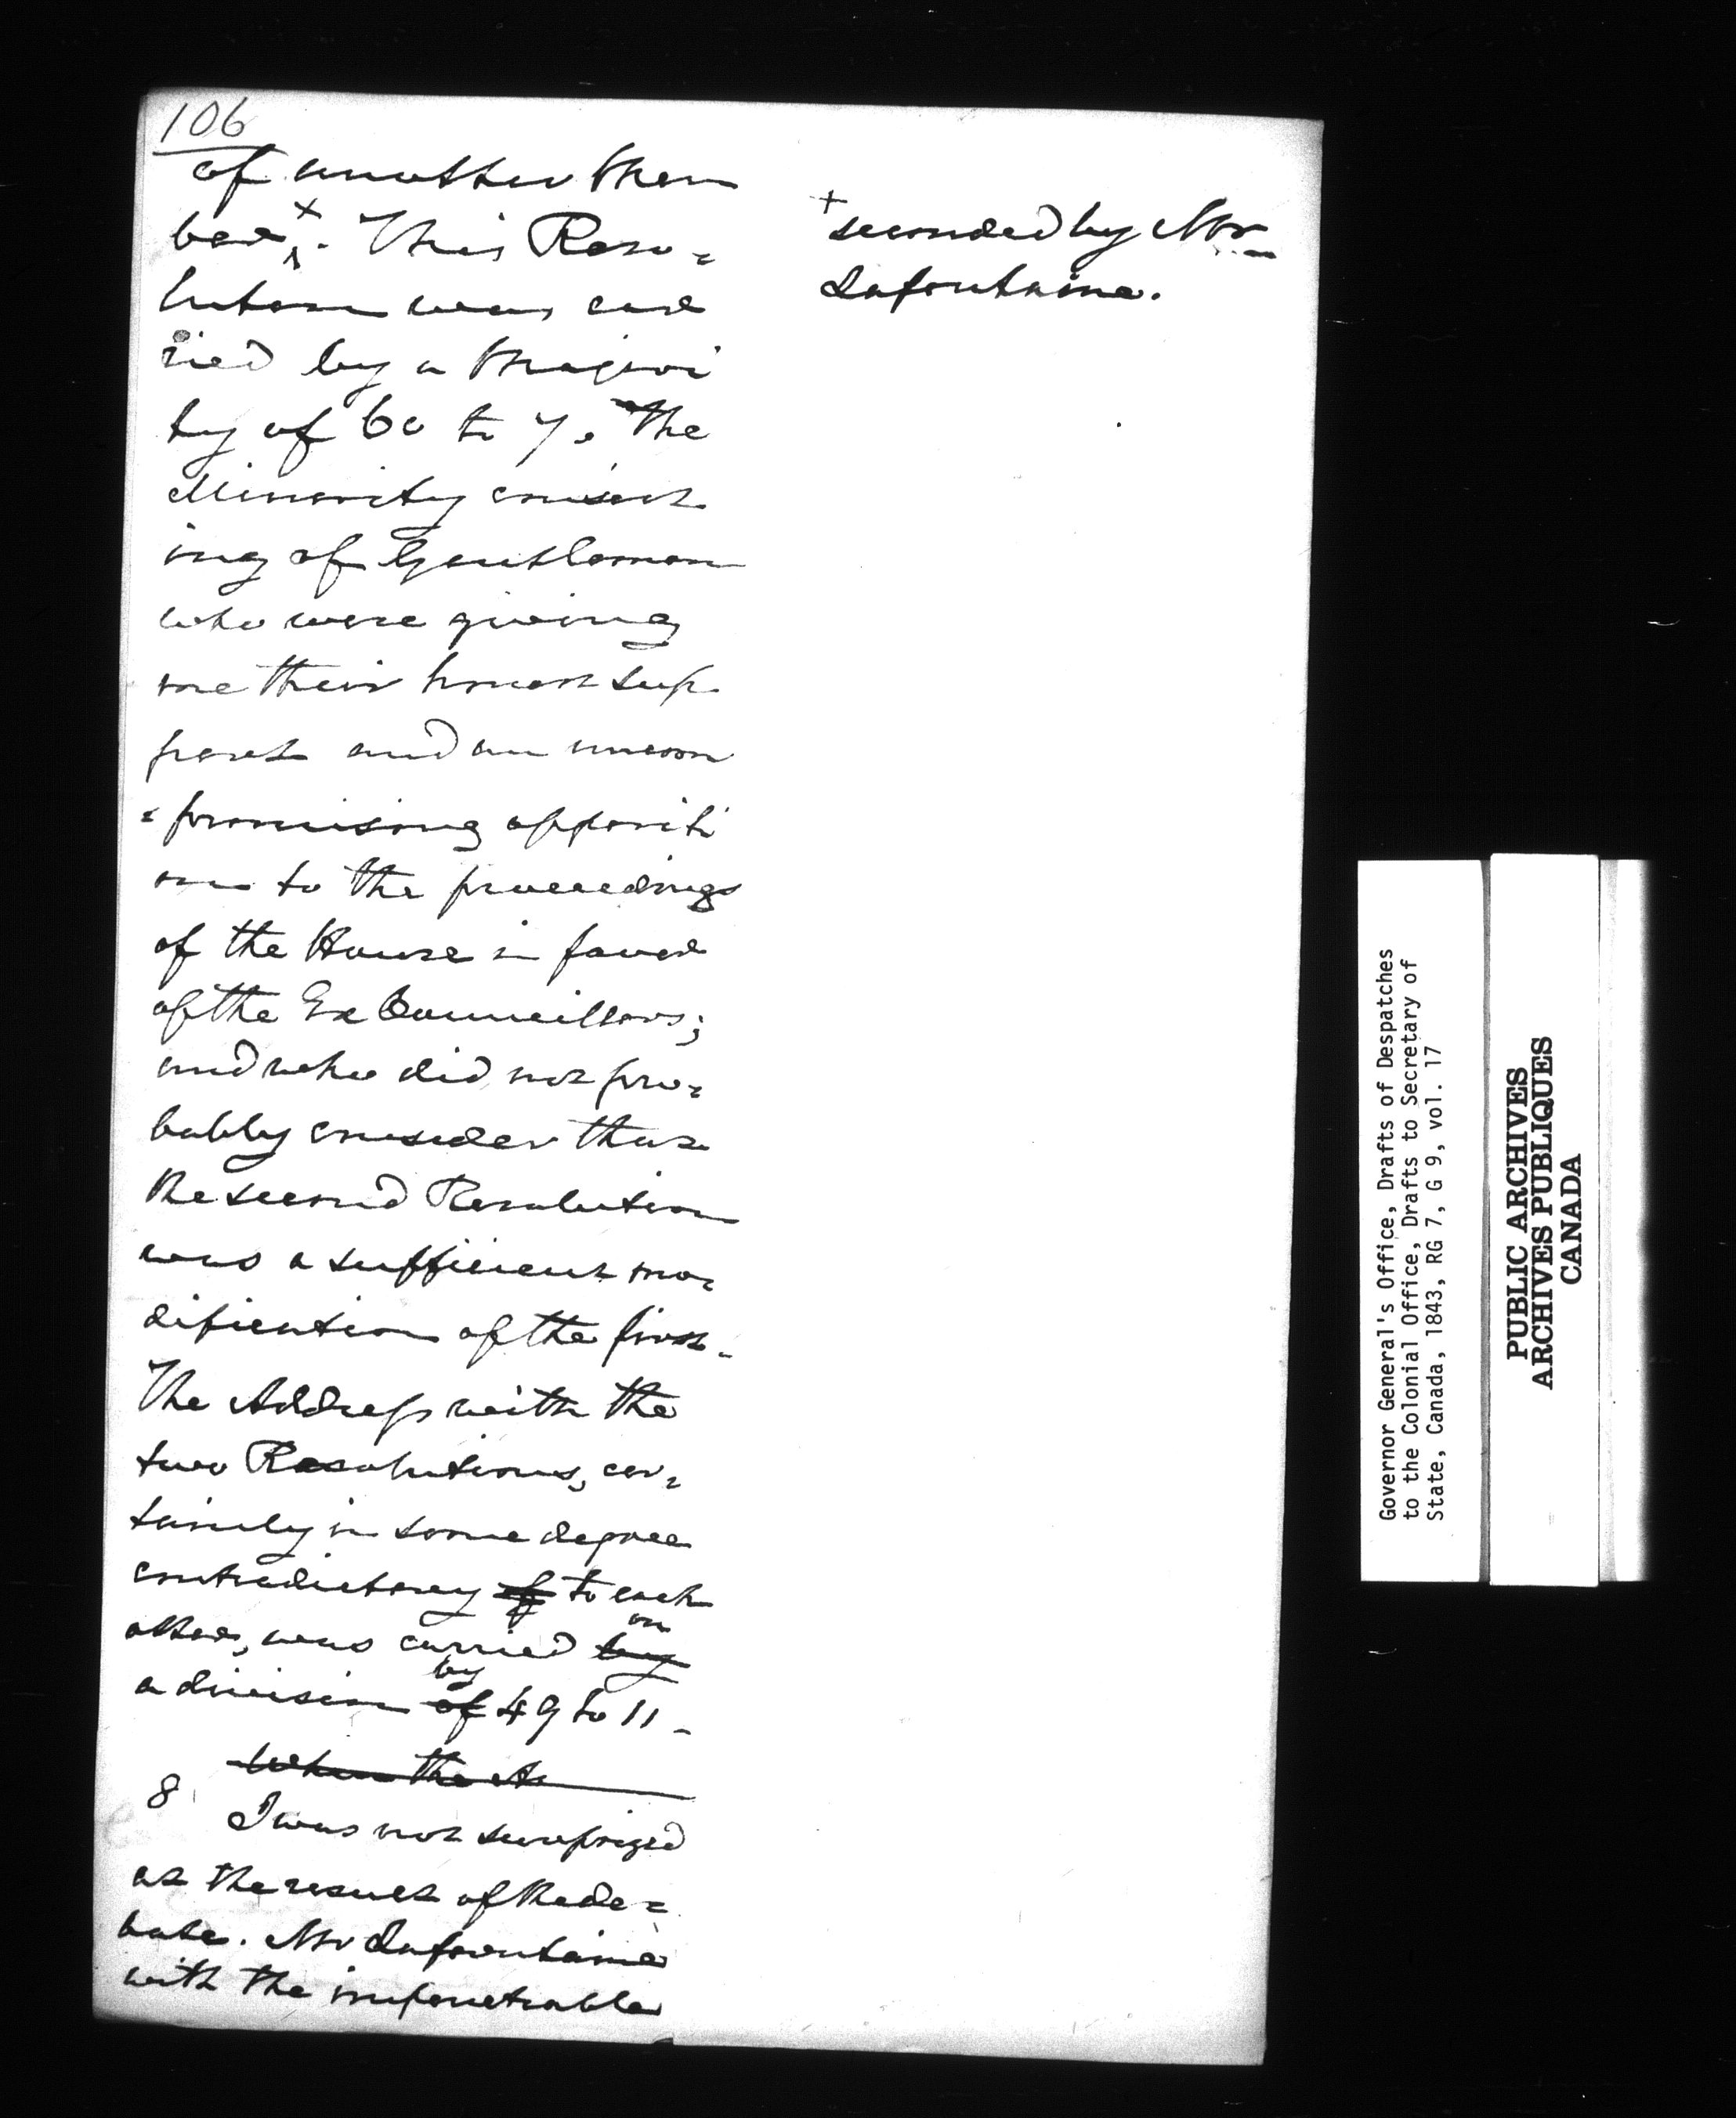 106
of another Mem
ber ˣ. This Reso=
lution was car
ried by a Majori
ty of 60 to 7. The
Minority consist
ing of Gentlemen
who were giving
me their honest sup
port and an uncom
=promising oppositi
on to the proceedings
of the House in favor
of the Ex Councillors;
and who did not pro=
bably consider that
the second Resolution
was a sufficient mo=
dification of the first.
The Address with the
two Resolutions, cer=
tainly in some degree
contradictory of to each
other, was carried by on
a division of by 49 to 11 -
When the A
8 I was not surprized
at the result of the de=
bate. Mr Lafontaine
with the impenetrable
+ seconded by Mr
Lafontaine.
Governor General's Office, Drafts of Despatches
to the Colonial Office, Drafts to Secretary of
State, Canada, 1843, RG 7, G 9, vol. 17
PUBLIC ARCHIVES
ARCHIVES PUBLIQUES
CANADA